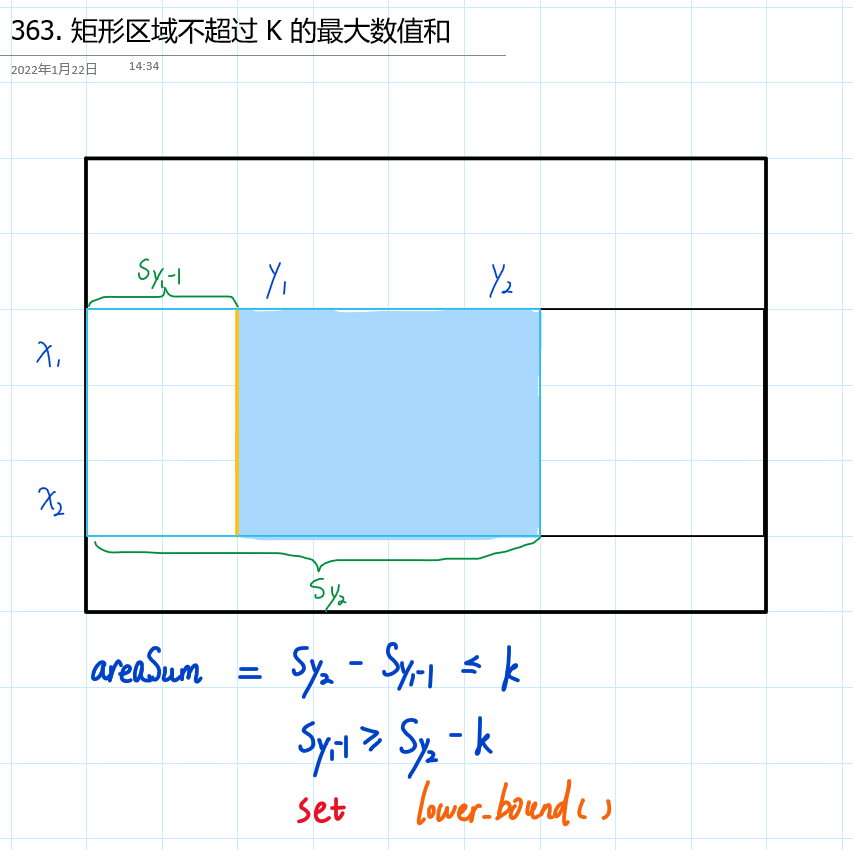 363. 矩形区域不超过 K 的最大数值和
2022年1月22日 14:34
Sy₁-1
y₁ y₂
x₁
x₂
Sy₂
areaSum = Sy₂ - Sy₁-1 ≤ k
Sy₁-1 ≥ Sy₂ - k
set lower_bound()